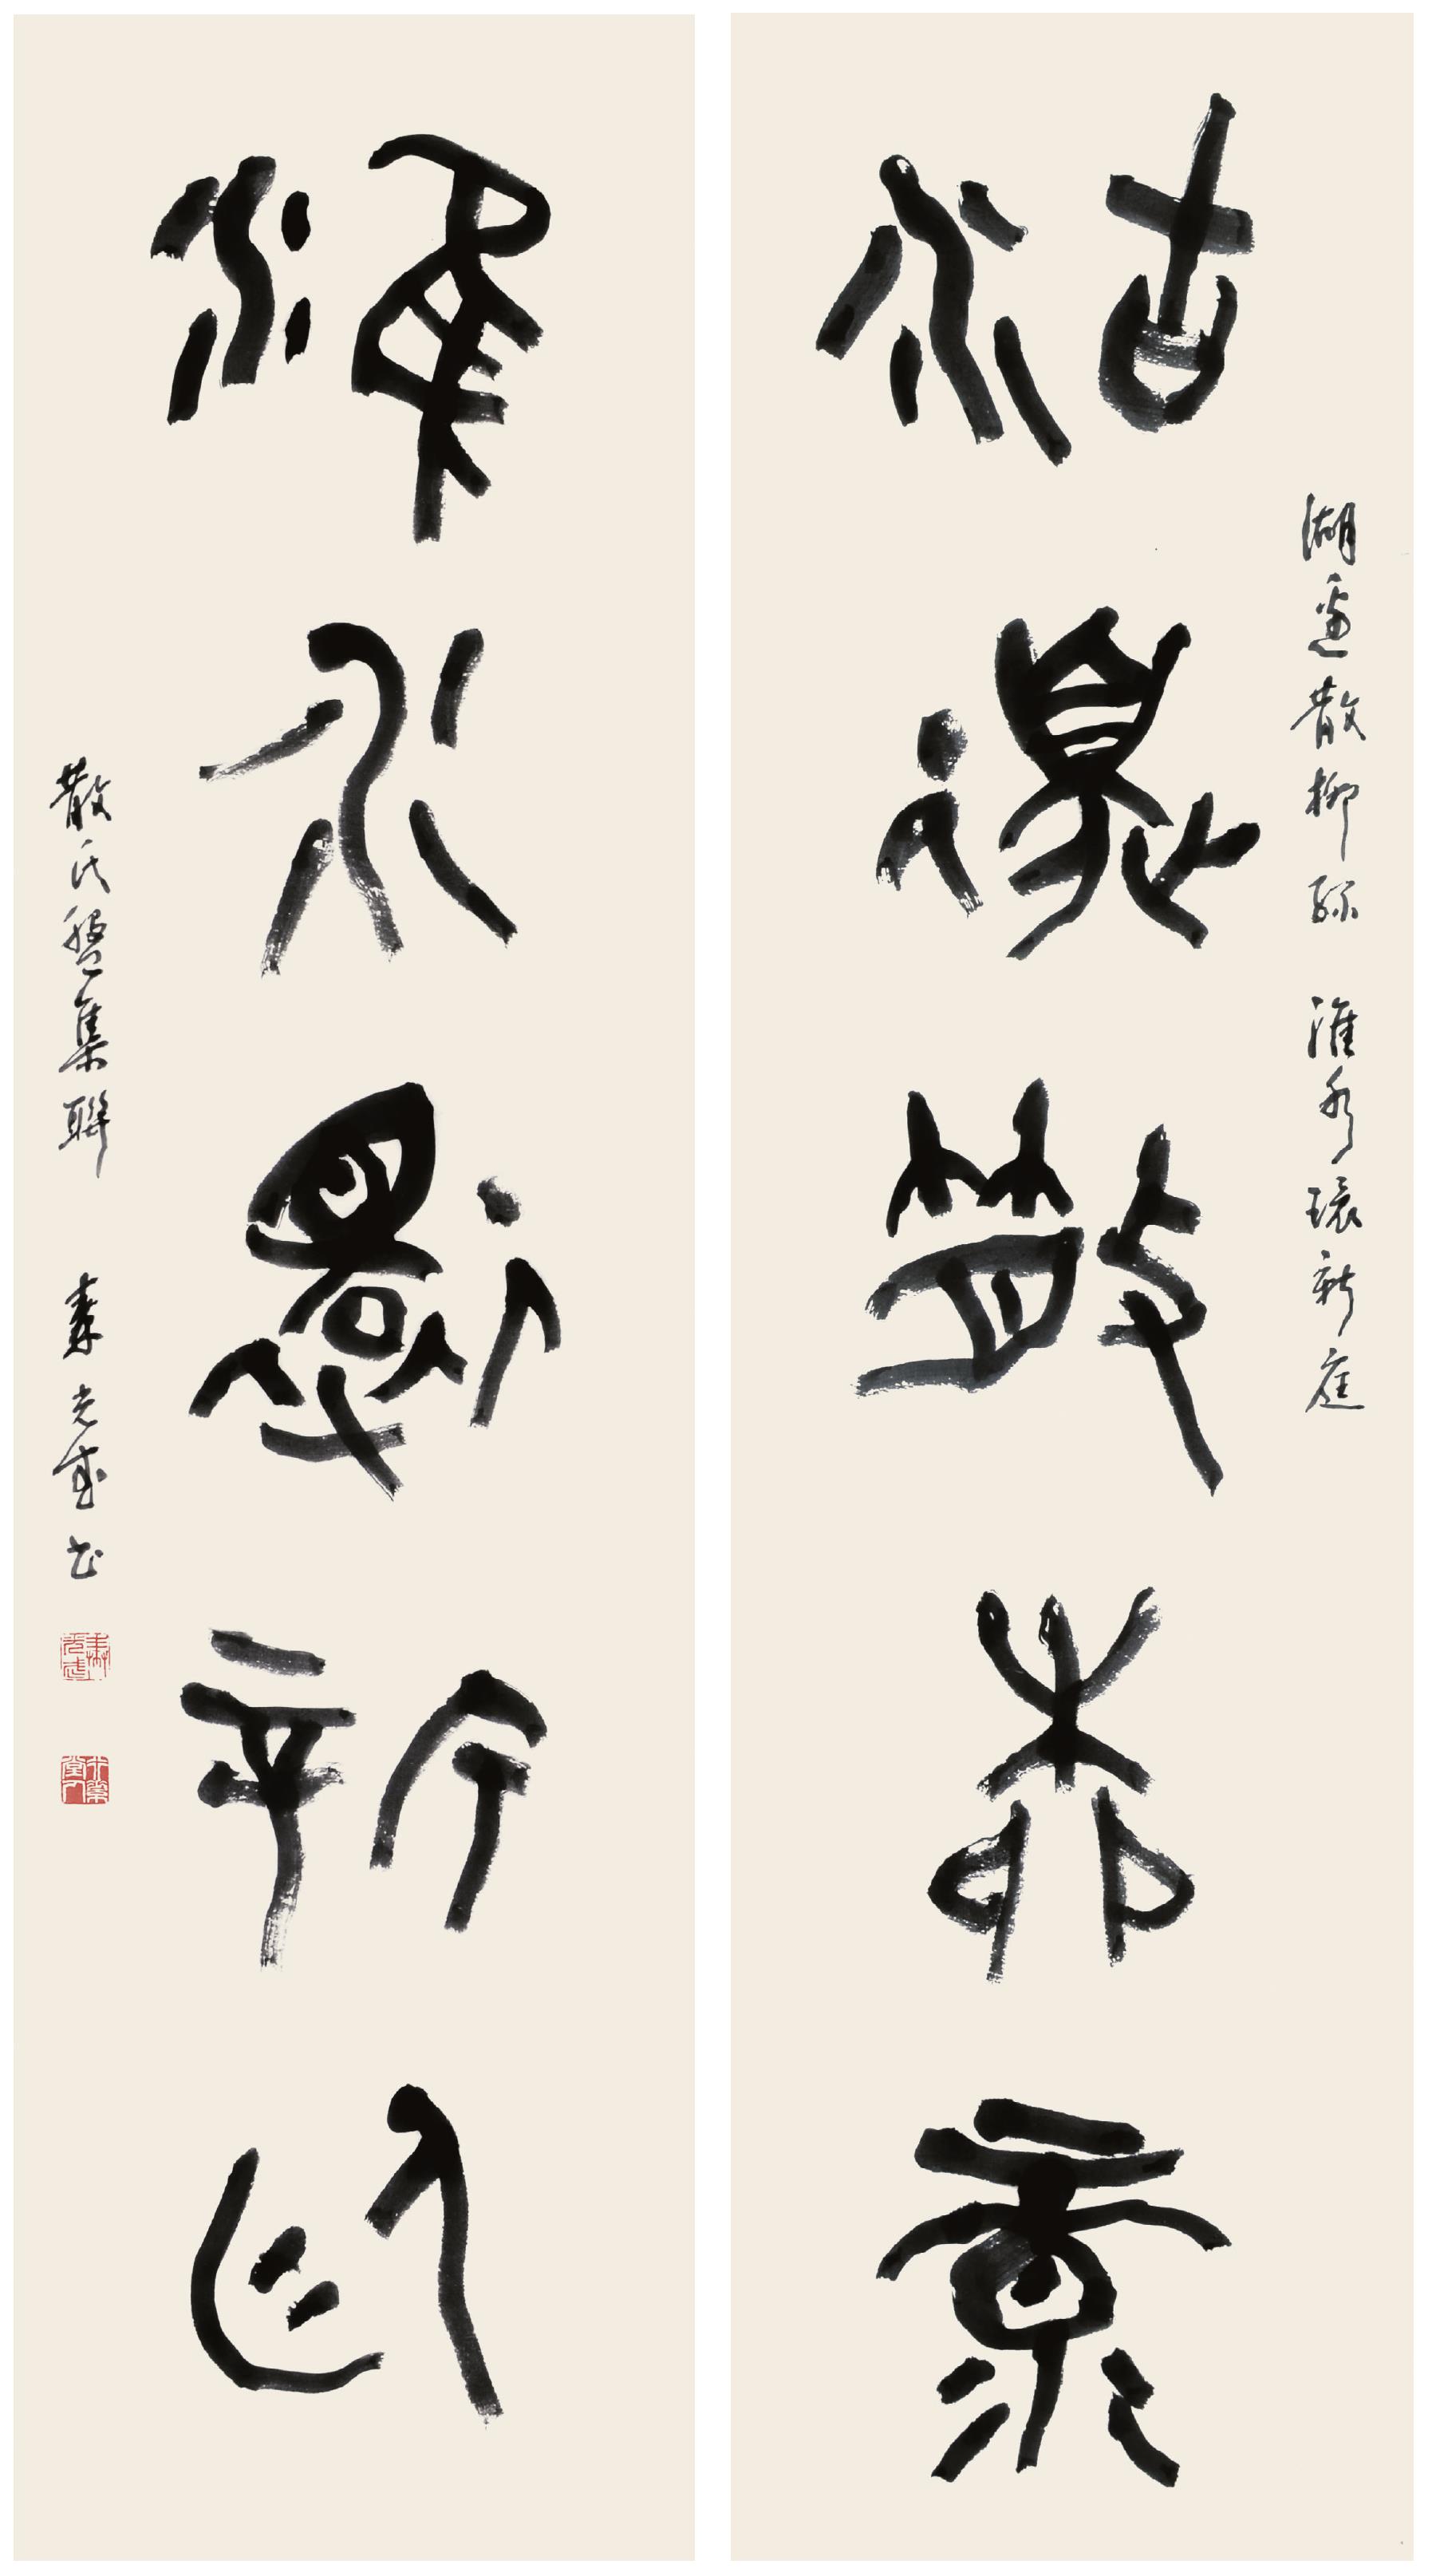 湖邊散柳 淮水環新庭
湖邊散柳
淮水環新庭
散氏盤集聯 秦光武书